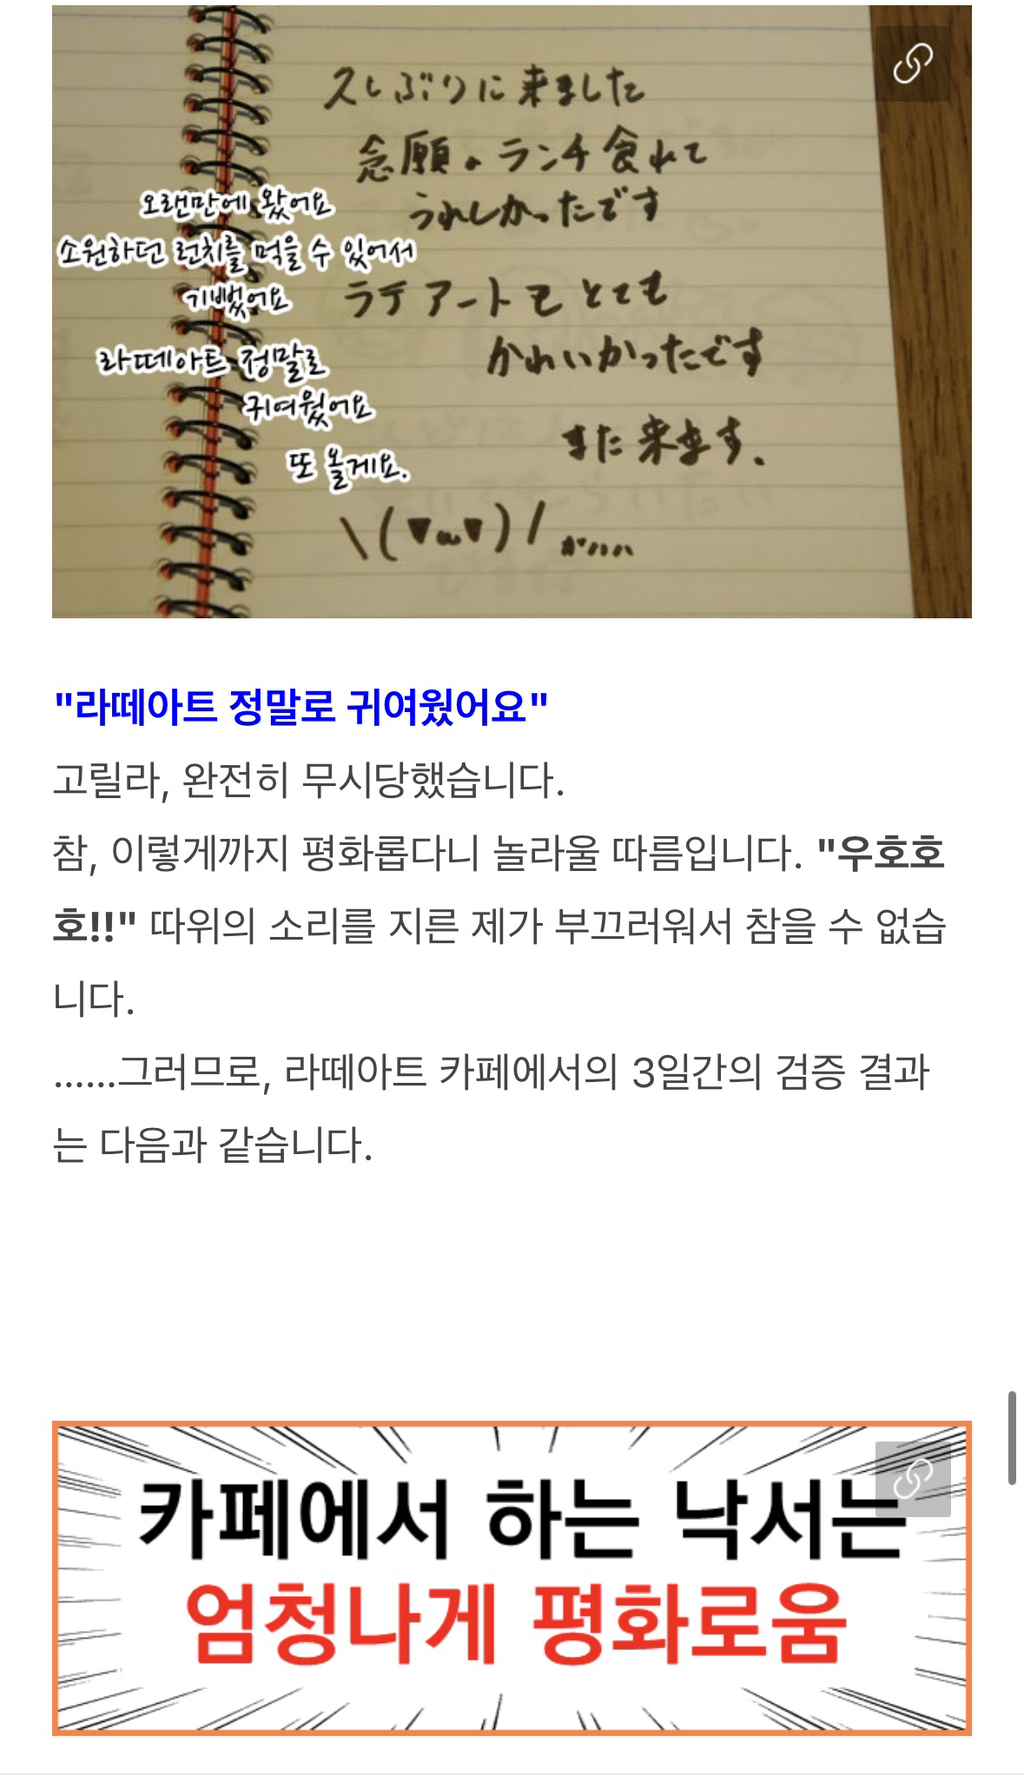 久しぶりに来ました
念願のランチ食れて
うれしかったです
오랜만에 왔어요
소원하던 런치를 먹을 수 있어서
기뻤어요
ラテアートもとても
かわいかったです
라떼아트 정말로
귀여웠어요
また来ます.
또 올게요.
\(▼ω▼)/
"라떼아트 정말로 귀여웠어요"
고릴라, 완전히 무시당했습니다.
참, 이렇게까지 평화롭다니 놀라울 따름입니다. "우호호
호!!" 따위의 소리를 지른 제가 부끄러워서 참을 수 없습
니다.
......그러므로, 라떼아트 카페에서의 3일간의 검증 결과
는 다음과 같습니다.
카페에서 하는 낙서는
엄청나게 평화로움